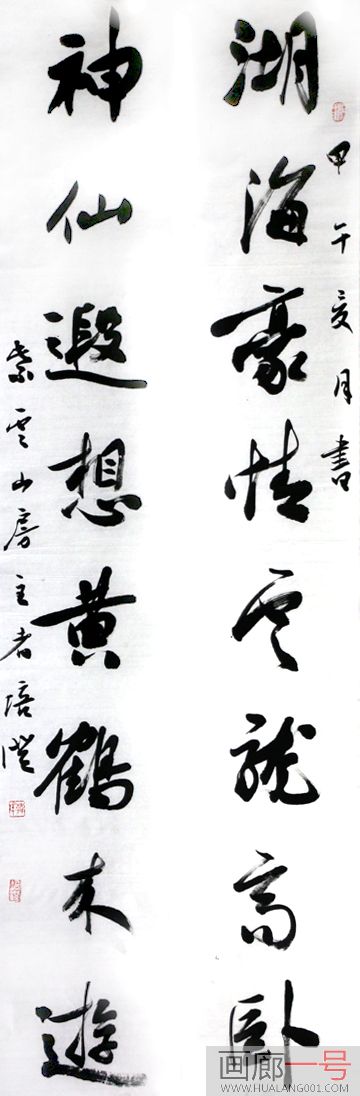 甲午夏月書
湖海豪情雲龍高卧
神仙遐想黄鶴来遊
紫雲山房主者培澄
画廊一号
WWW.HUALANG001.COM